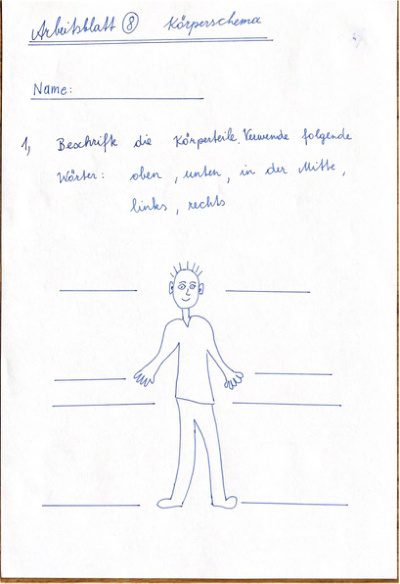 Arbeitsblatt ⑧ Körperschema
Name:
1, Beschrifte die Körperteile. Verwende folgende
Wörter: oben, unten, in der Mitte,
links, rechts